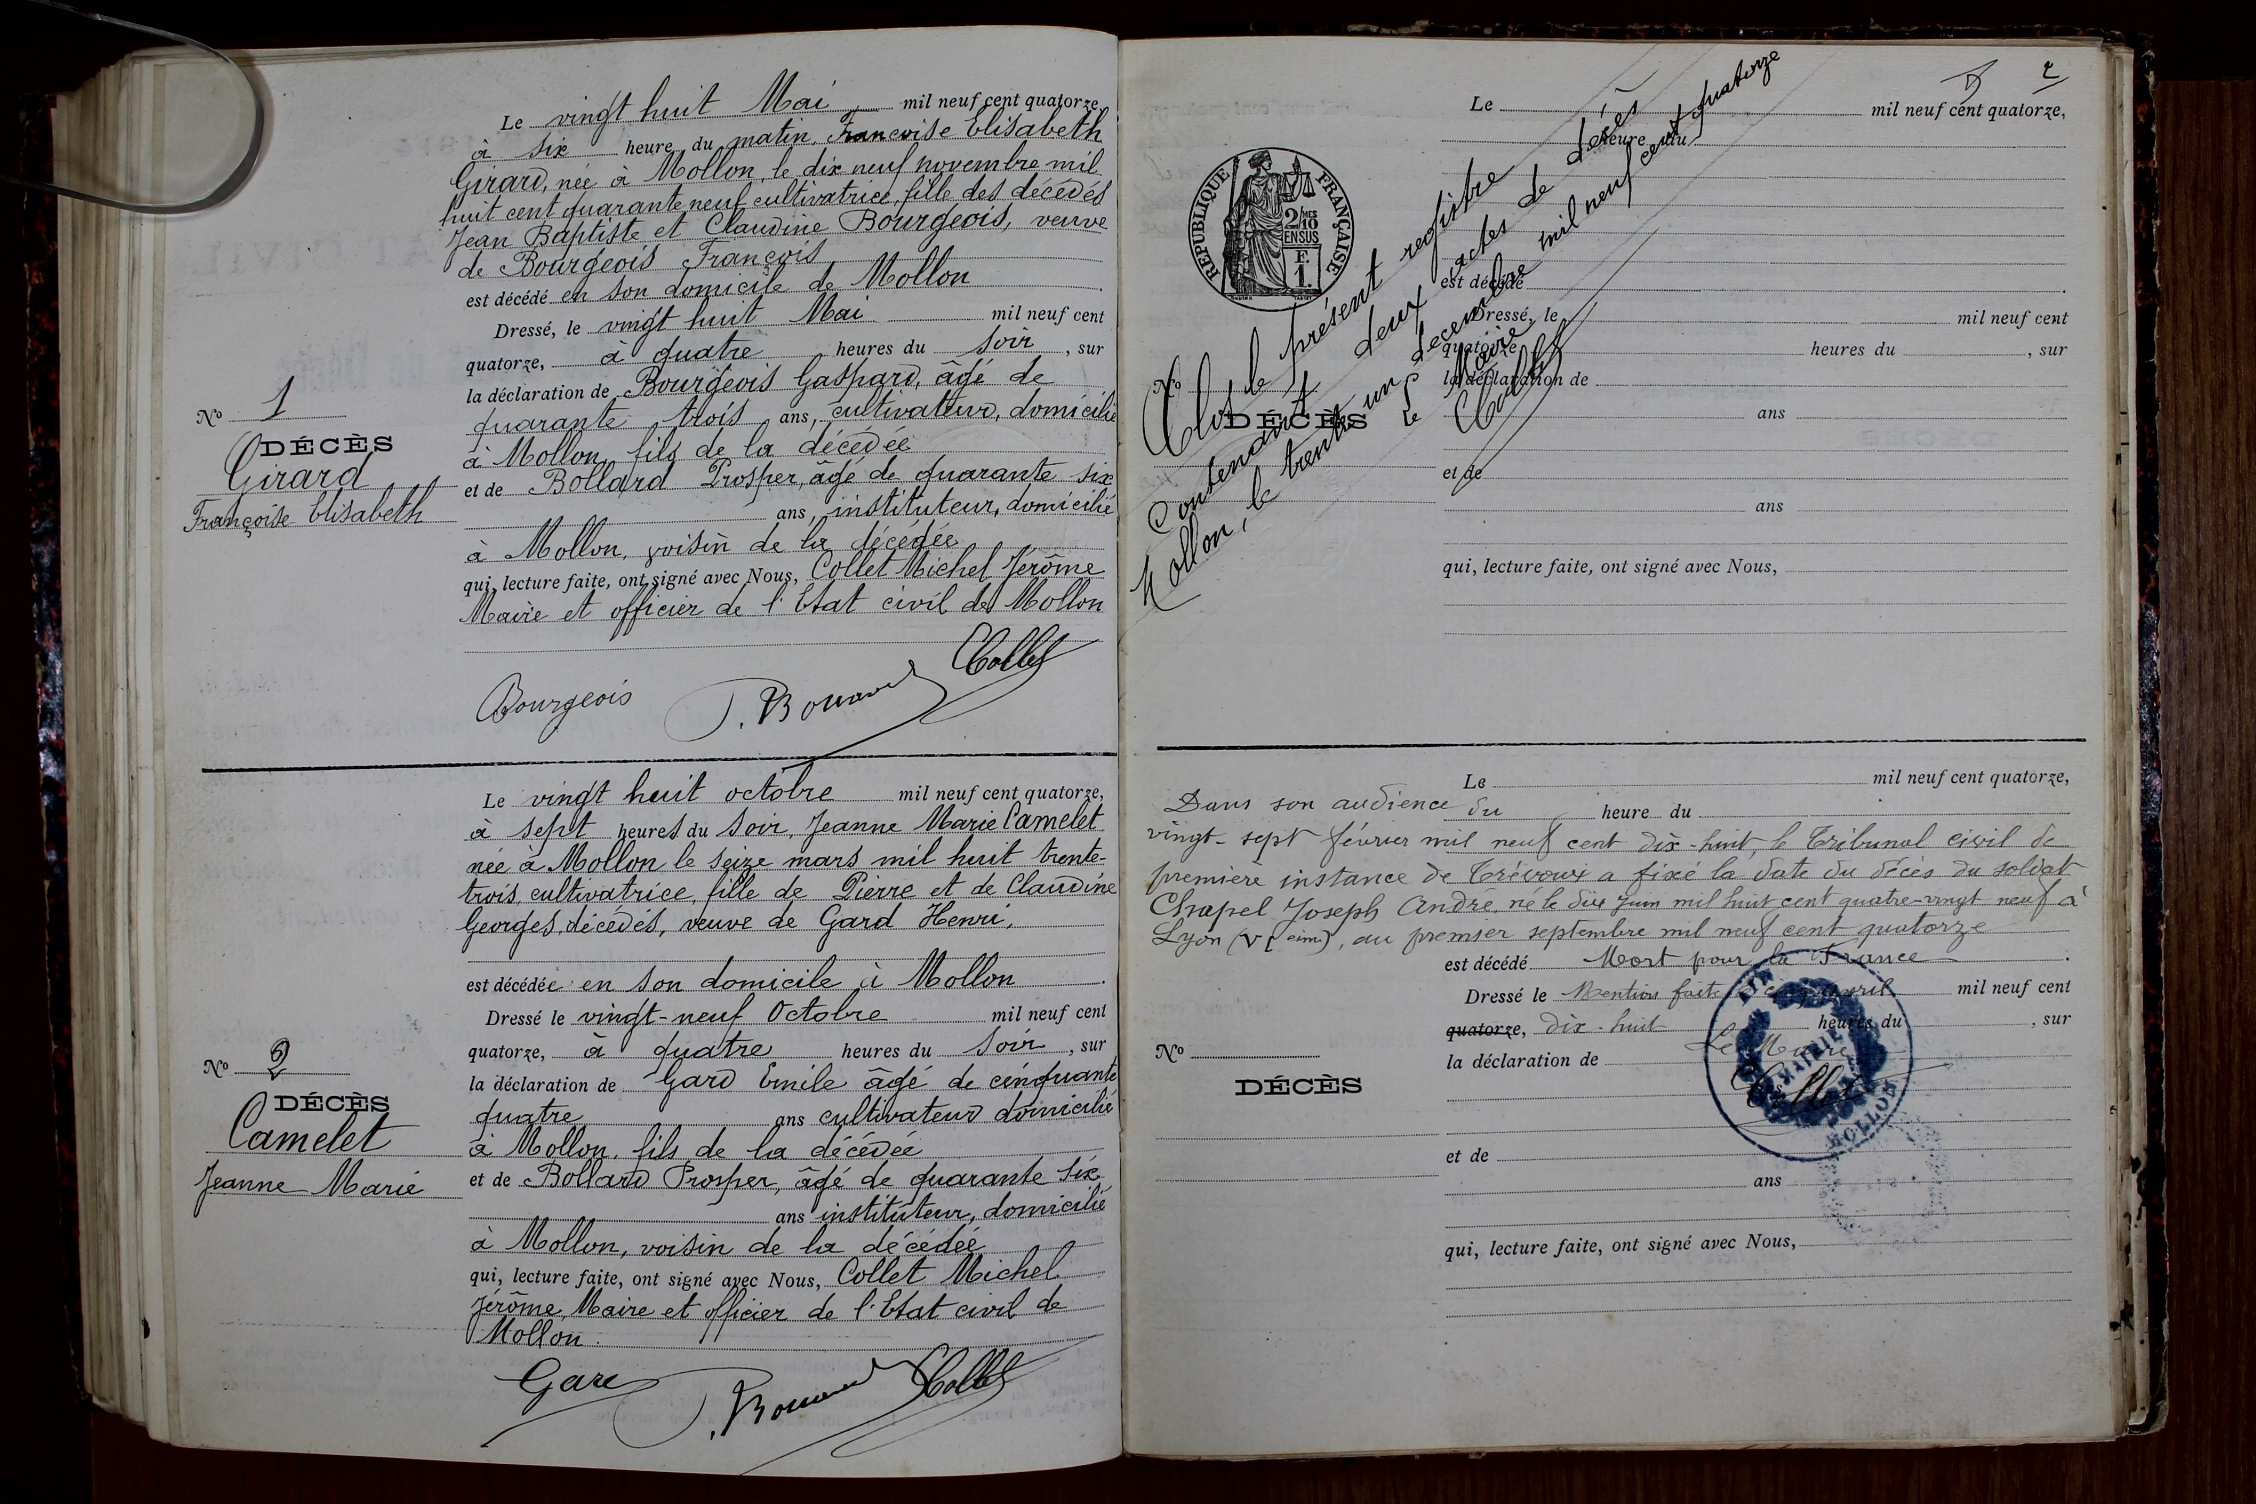 Le vingt huit Mai mil neuf cent quatorze,
à six heure du matin, Françoise Elisabeth
Girard, née à Mollon, le dix neuf novembre mil
huit cent quarante neuf cultivatrice, fille des décédés
Jean Baptiste et Claudine Bourgeois, veuve
de Bourgeois François
est décédé en son domicile de Mollon
Dressé, le vingt huit Mai mil neuf cent
quatorze, à quatre heures du soir, sur
la déclaration de Bourgeois Gaspard, âgé de
quarante trois ans, cultivateur, domicilié
à Mollon, fils de la décédée
et de Bollard Prosper, âgé de quarante six
ans, instituteur, domicilié
à Mollon, voisin de la décédée
qui, lecture faite, ont signé avec Nous, Collet Michel Jérôme
Maire et officier de l'Etat civil de Mollon
Bourgeois Collet
No 1
DÉCÈS
Girard
Françoise Elisabeth
Le vingt huit octobre mil neuf cent quatorze,
à sept heures du soir, Jeanne Marie Camelet
née à Mollon le seize mars mil huit trente-
trois, cultivatrice, fille de Pierre et de Claudine
Georges, décédés, veuve de Gard Henri,
est décédée en son domicile à Mollon
Dressé le vingt-neuf Octobre mil neuf cent
quatorze, à quatre heures du soir, sur
la déclaration de Gard Emile âgé de cinquante
quatre ans cultivateur domicilié
à Mollon, fils de la décédée
et de Bollard Prosper, âgé de quarante six
ans instituteur, domicilié
à Mollon, voisin de la décédée
qui, lecture faite, ont signé avec Nous, Collet Michel
Jérôme, Maire et officier de l'Etat civil de
Mollon.
Gard Collet
No 2
DÉCÈS
Camelet
Jeanne Marie
2
RÉPUBLIQUE FRANÇAISE
2/10MES
EN SUS
F.
1.
Clos le présent registre
Contenant deux actes de décès
Mollon, le trente un décembre mil neuf cent quatorze
Le Maire
Collet
Le mil neuf cent quatorze,
heure du
est décédé
Dressé, le mil neuf cent
quatorze heures du , sur
la déclaration de
No
DÉCÈS
ans
et de
ans
qui, lecture faite, ont signé avec Nous,
Le mil neuf cent quatorze,
heure du
Dans son audience du
vingt-sept février mil neuf cent dix-huit, le Tribunal civil de
première instance de Trévoux a fixé la date du décès du soldat
Chapel Joseph André, né le dix Juin mil huit cent quatre-vingt neuf à
Lyon (VI eime), au premier septembre mil neuf cent quatorze
est décédé Mort pour la France
Dressé le Mention faite avril mil neuf cent
quatorze, dix-huit heures du , sur
Le Maire
la déclaration de
Collet
MAIRIE
MOLLON
No
DÉCÈS
et de
ans
qui, lecture faite, ont signé avec Nous,